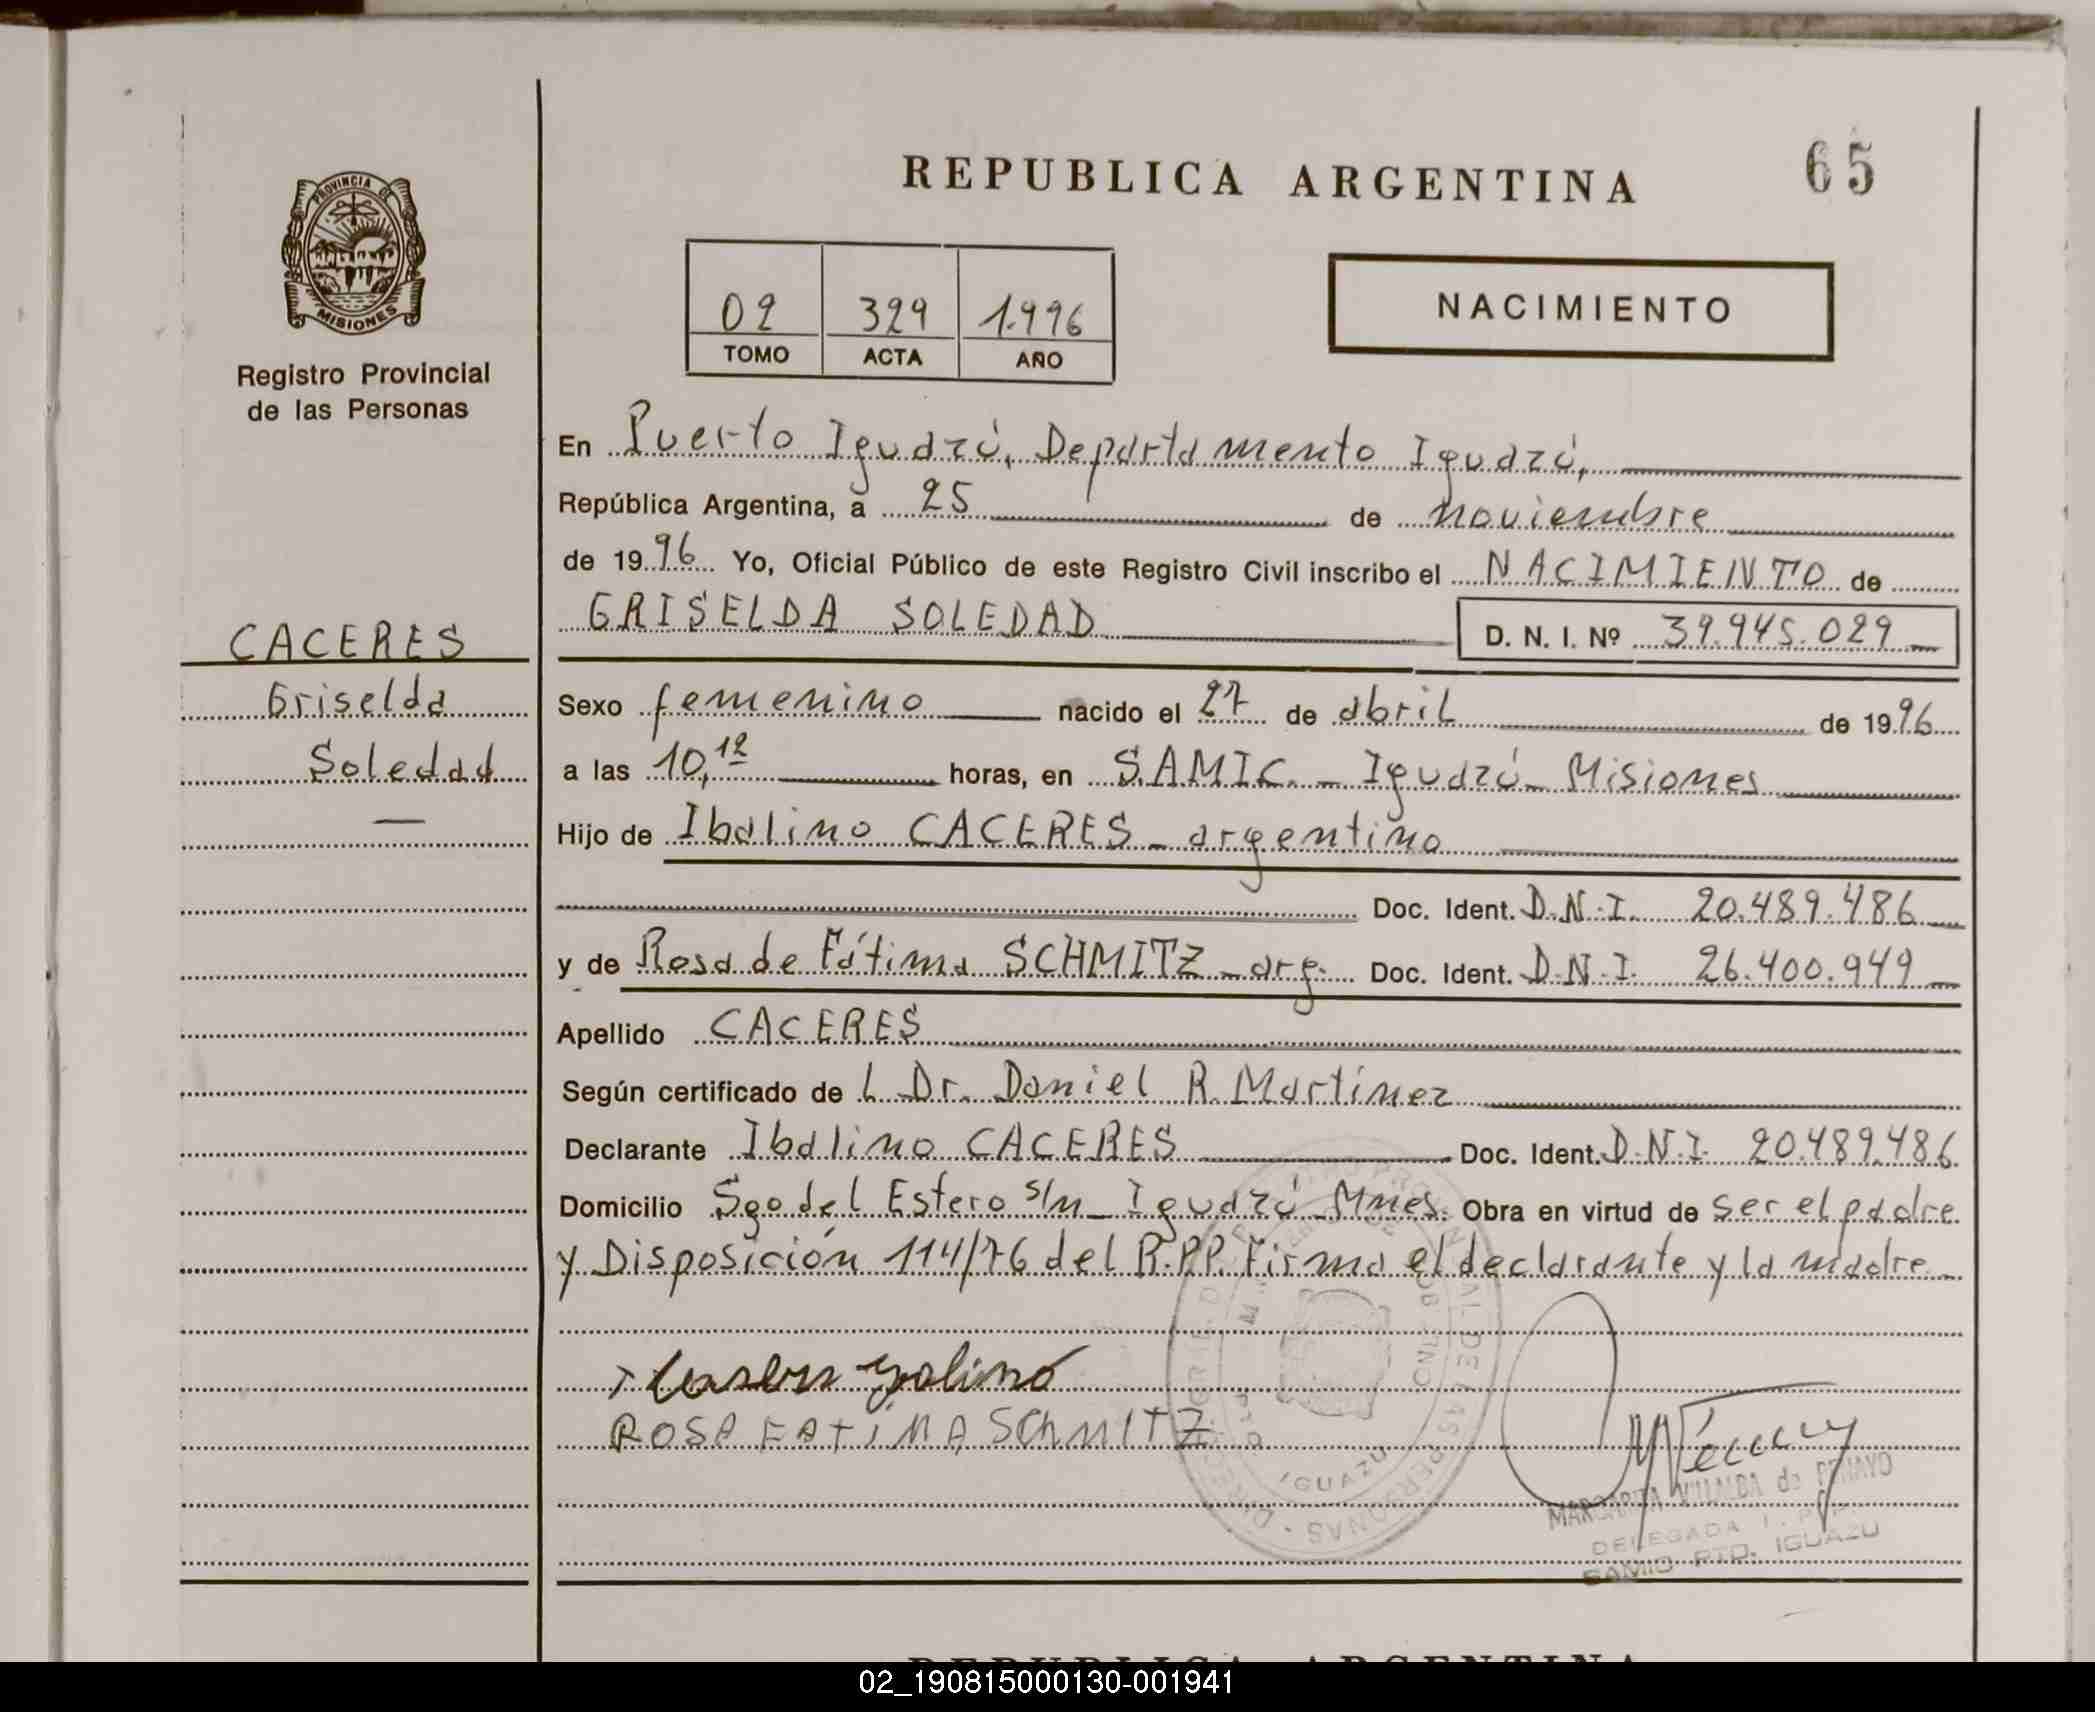 65
REPUBLICA ARGENTINA
PROVINCIA DE
MISIONES
Registro Provincial
de las Personas
02 329 1.996
TOMO ACTA AÑO
NACIMIENTO
CACERES
Griselda
Soledad
En Puerto Iguazú, Departamento Iguazú,
República Argentina, a 25 de noviembre
de 1996 Yo, Oficial Público de este Registro Civil inscribo el NACIMIENTO de
GRISELDA SOLEDAD D. N. I. Nº 39.945.029
Sexo femenino nacido el 27 de abril de 1996
a las 10,12 horas, en S.A.M.I.C. - Iguazú - Misiones
Hijo de Ibalino CACERES - argentino
Doc. Ident. D.N.I. 20.489.486
y de Rosa de Fátima SCHMITZ - arg. Doc. Ident. D.N.I. 26.400.949
Apellido CACERES
Según certificado de L Dr. Daniel R. Martínez
Declarante Ibalino CACERES Doc. Ident. D.N.I. 20.489.486
Domicilio Sgo del Estero s/n - Iguazú - Mnes. Obra en virtud de ser el padre
y Disposición 114/76 del R.P.P. Firma el declarante y la madre -
ROSA FATIMA SCHMITZ
IGUAZU
MARGARITA VILLALBA de PENAYO
DELEGADA
SAMIC PTO. IGUAZU
REPUBLICA ARGENTINA
02_190815000130-001941